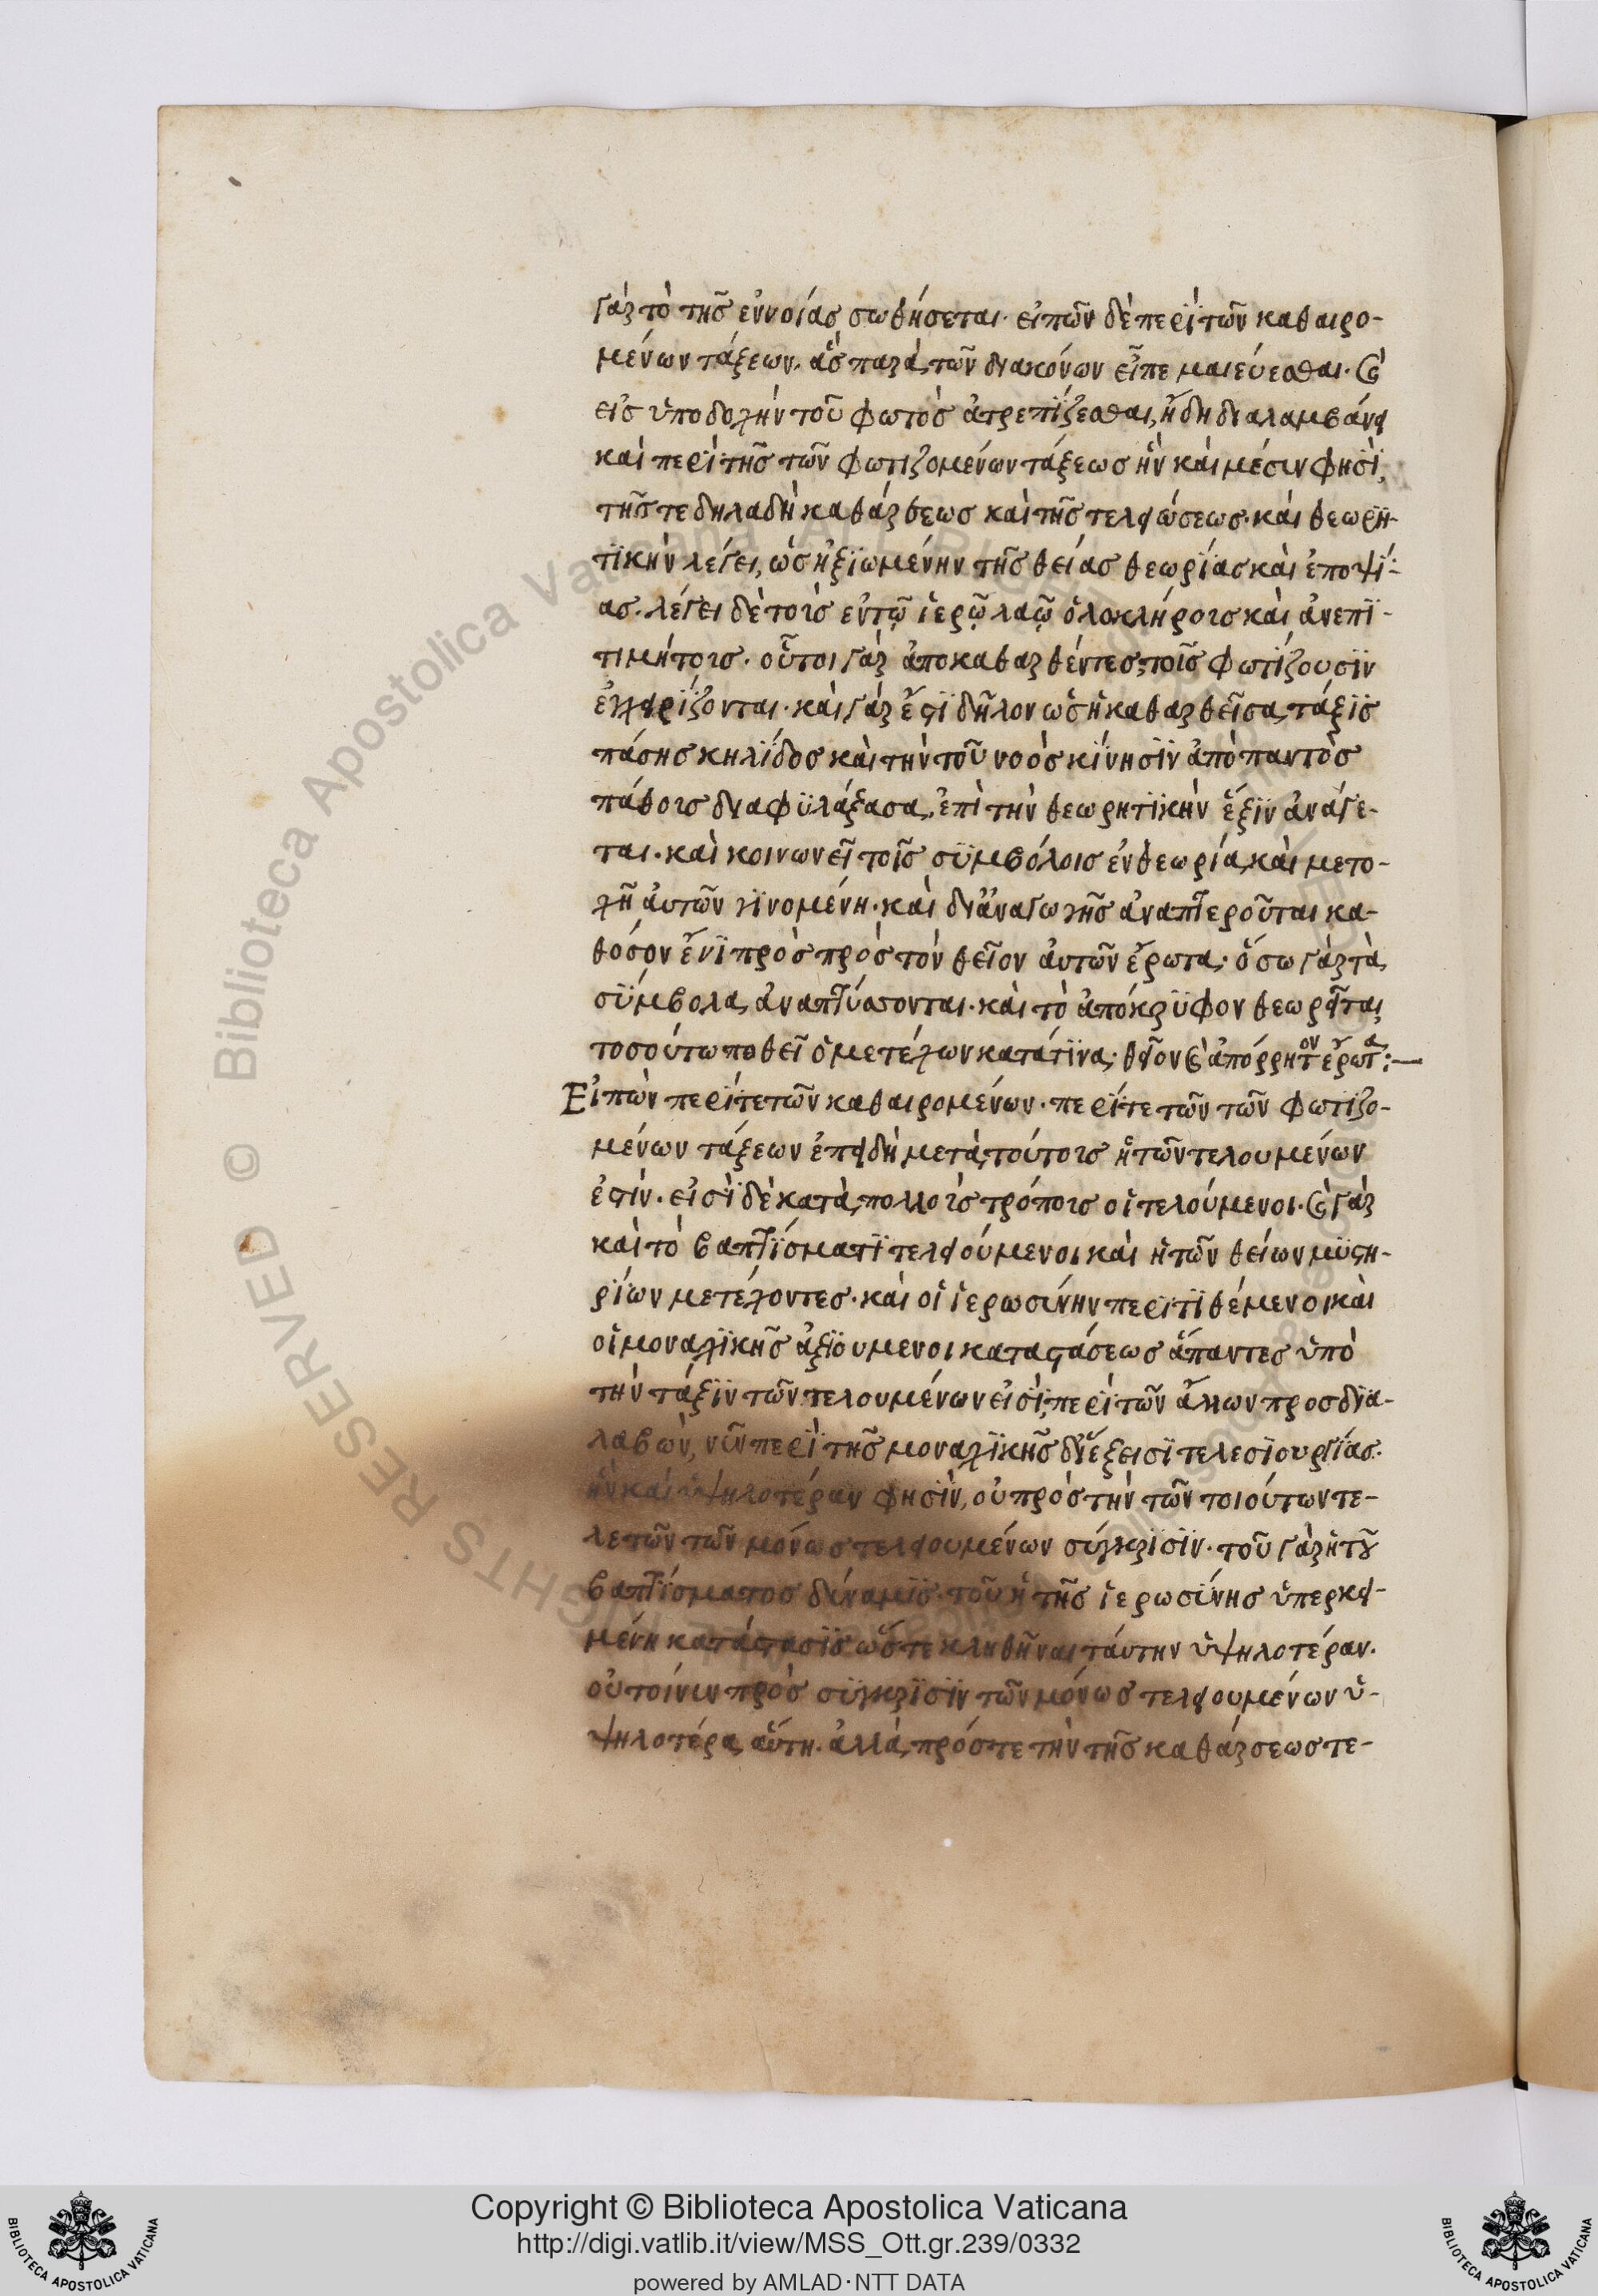 γὰρ τὸ τῆς εὐνοίας σωθήσεται· εἰπῶν δὲ περὶ τῶν καθαιρο-
μένων τάξεων. ἃς παρὰ τῶν διακόνων εἶπε μαιεύεσθαι· καὶ
εἰς ὑποδοχὴν τοῦ φωτὸς ἀτρεπίζεσθαι, ἤδη διαλαμβάνει
καὶ περὶ τῆς τῶν φωτιζομένων τάξεως ἣν καὶ μέσιν φησὶ,
τῆς τε δηλαδὴ καθάρσεως καὶ τῆς τελειώσεως· καὶ θεωρη-
τϊκὴν λέγει, ὡς ἠξϊωμένην τῆς θείας θεωρίας καὶ ἐποψί-
ας. λέγει δὲ τοὶς ἐν τῷ ἱερῷ λαῷ ὁλοκλήροις καὶ ἀνεπϊ-
τιμήτοις· οὗτοι γὰρ ἀποκαθαρθέντες, τοῖς φωτίζουσϊν
ἐγχειρίζονται· καὶ γάρ ἐστϊ δῆλον ὡς ἡ καθαρθεῖσα τάξϊς
πάσης κηλῖδος καὶ τὴν τοῦ νοὸς κίνησϊν ἀπὸ παντὸς
πάθοις διαφϋλάξασα, ἐπὶ τὴν θεωρητϊκὴν ἕξϊν ἀνάγε-
ται· καὶ κοινωνεῖ τοῖς σϋμβόλοις ἐν θεωρία καὶ μετο-
χῆ ἀυτῶν γϊνομένη· καὶ δι ἀναγωγῆς ἀναπτεροῦται κα-
θόσον ἔνϊ πρὸς πρὸς τὸν θεῖον ἀυτῶν ἔρωτα· ὅσω γὰρ τὰ
σϋμβολα ἀναπτύσσονται· καὶ τὸ ἀπόκρϋφον θεωρεῖται,
τοσούτω ποθεῖ ὁ μετέχων κατά τϊνα· θεῖον καὶ ἀπόρρητον ἔρωτα:—
Εἰπὼν περί τε τῶν καθαιρομένων· περί τε τῶν τῶν φωτιζο-
μένων τάξεων ἐπειδὴ μετὰ τούτοις ἡ τῶν τελουμένων
ἐστίν. εἰσὶ δὲ κατὰ πολλοὶς τρόποις οἱ τελούμενοι· καὶ γὰρ
καὶ τὸ βαπτίσματϊ τελειούμενοι καὶ ἡ τῶν θείων μϋστη-
ρίων μετέχοντες· καὶ οἱ ἱερωσίνην περϊτϊθέμενοι καὶ
οἱ μοναχϊκῆς ἀξϊουμενοι καταστάσεως ἅπαντες ὑπὸ
τὴν τάξϊν τῶν τελουμένων εἰσί, περὶ τῶν ἄλλων προσδϊα-
λαβὼν, νῦν περὶ τῆς μοναχϊκῆς διέξεισϊ τελεσϊουργίας.
ἣν καὶ ὑψηλοτέραν φησϊν, οὐ πρὸς τὴν τῶν τοιούτων τε-
λετῶν τῶν μόνως τελειουμένων σύγκρϊσϊν· τοῦ γὰρ ἡ τοῦ
βαπτίσματος δίναμϊς· τοῦ ἡ τῆς ἱερωσίνης ὑπερκει-
μένη κατάστασϊς ὥστε κληθῆναι τάυτην ὑψηλοτέραν.
οὐ τοίνιν πρὸς σϋγκρϊσϊν τῶν μόνως τελειουμένων ὑ-
ψηλοτέρα αὕτη. ἀλλὰ πρός τε τὴν τῆς καθάρσεως τε-
Copyright © Biblioteca Apostolica Vaticana
http://digi.vatlib.it/view/MSS_Ott.gr.239/0332
powered by AMLAD·NTT DATA
BIBLIOTECA APOSTOLICA VATICANA
BIBLIOTECA APOSTOLICA VATICANA